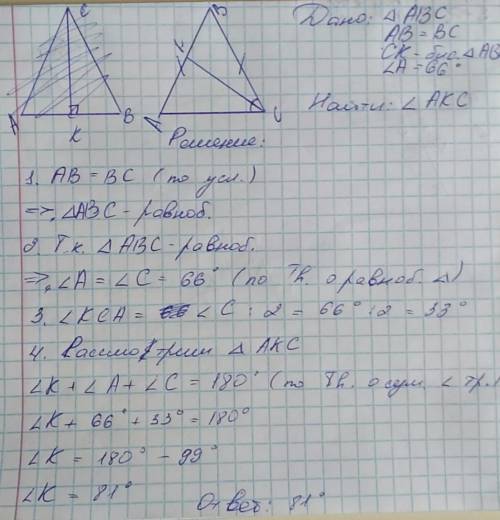 Дано: △ ABC
AB = BC
CK - бис. △ AB
∠A = 66°
Найти: ∠ AKC
C
A
B
K
B
K
A
C
Решение:
1. AB = BC (по усл.)
=>, △ABC - равноб.
2. Т.к. △ ABC - равноб.
=>, ∠A = ∠C = 66° (по Th. о равноб. △)
3. ∠KCA = ∠C : 2 = 66° : 2 = 33°
4. Рассмотрим △ AKC
∠K + ∠A + ∠C = 180° (по Th. о сум. ∠ тр.)
∠K + 66° + 33° = 180°
∠K = 180° - 99°
∠K = 81°
Ответ: 81°